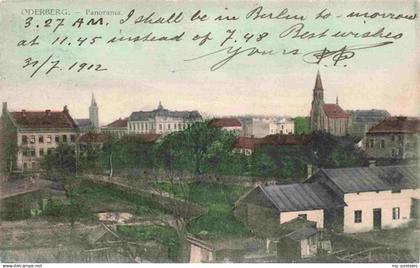 ODERBERG. – Panorama.
3.27 AM. I shall be in Berlin to-morrow
at 11.45 instead of 7.48 Best wishes
Yours
31/7.1912 Panorama.